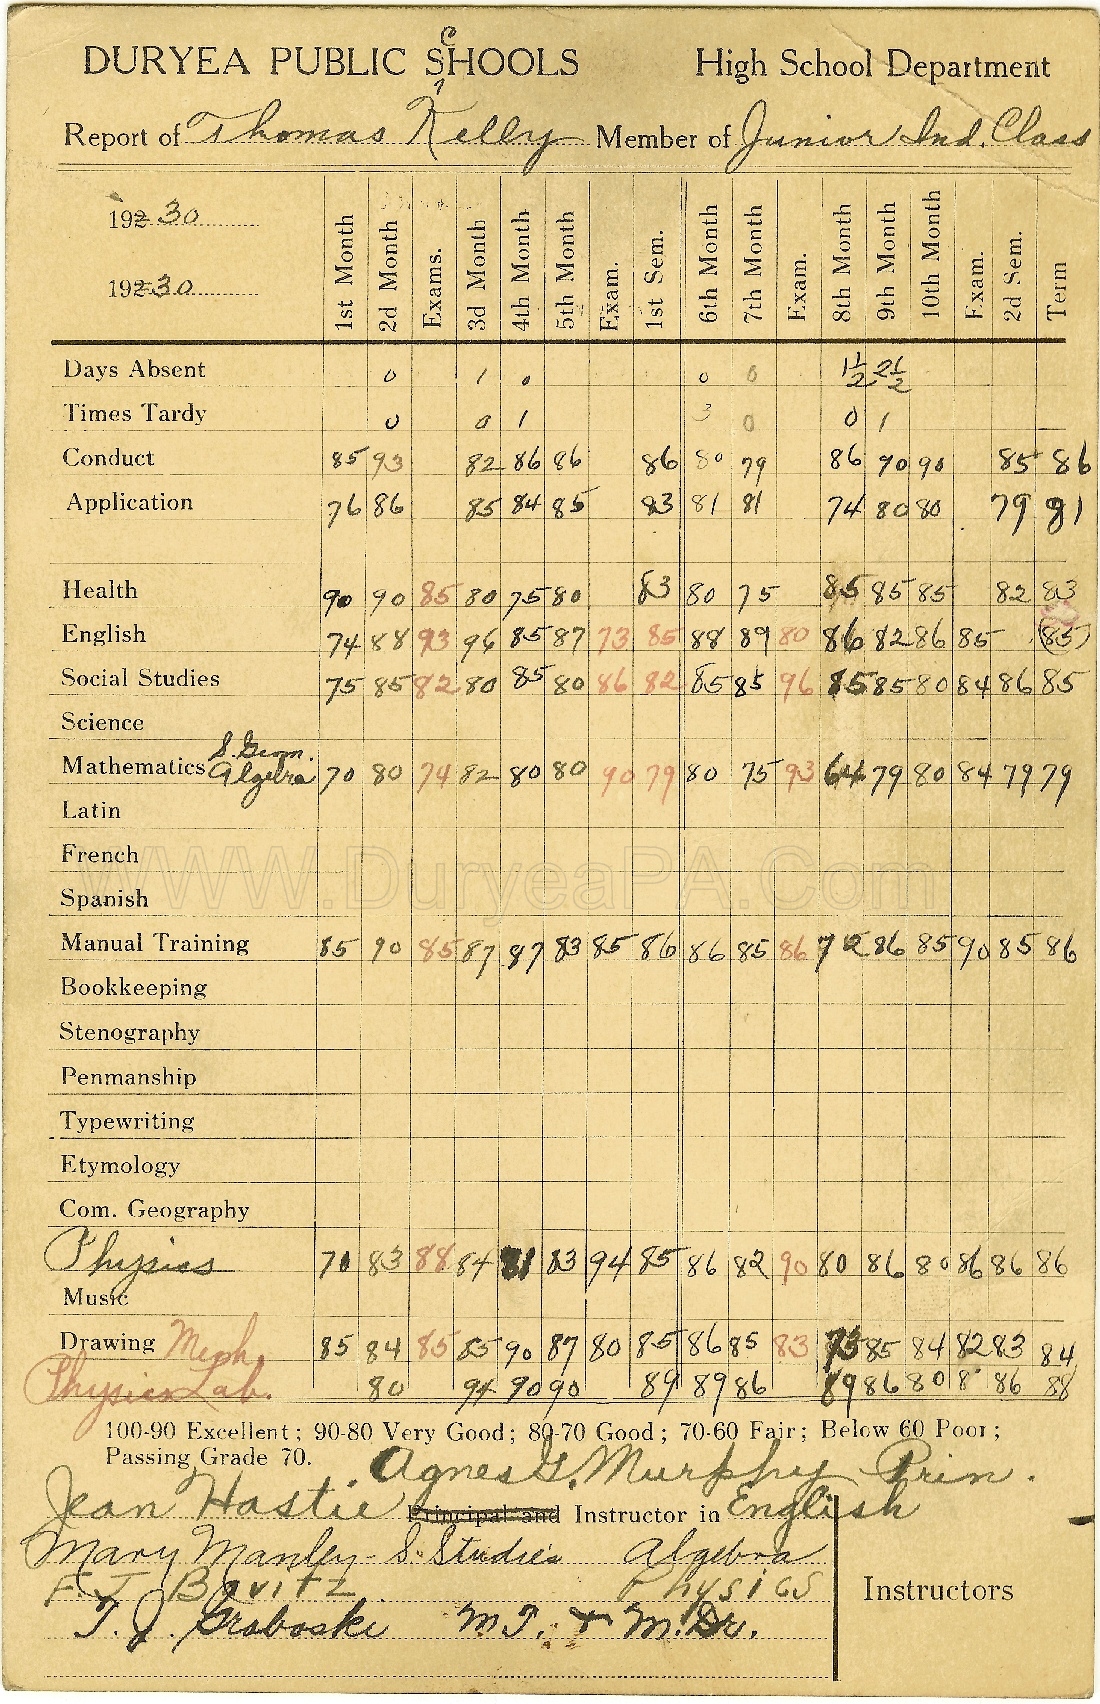 DURYEA PUBLIC SHOOLS High School Department
C
Report of Thomas Kelly Member of Junior Ind. Class
192 30
192 30
1st Month 2d Month Exams. 3d Month 4th Month 5th Month Exam. 1st Sem. 6th Month 7th Month Exam. 8th Month 9th Month 10th Month Exam. 2d Sem. Term
Days Absent 0 1 0 0 0 1½ 2½
Times Tardy 0 0 1 3 0 0 1
Conduct 85 93 82 86 86 86 80 79 86 90 90 85 86
Application 76 86 85 84 85 83 81 81 74 80 80 79 81
Health 90 90 85 80 75 80 83 80 75 85 85 85 82 83
English 74 88 93 96 85 87 73 85 88 89 80 86 82 86 85 85
Social Studies 75 85 82 80 85 80 86 82 85 85 96 85 85 80 84 86 85
Science
S. Geom.
Mathematics Algebra 70 80 74 82 80 80 90 79 80 75 93 64 79 80 84 79 79
Latin
French
WWW.DuryeaPA.Com
Spanish
Manual Training 85 90 85 87 87 83 85 86 86 85 86 72 86 85 90 85 86
Bookkeeping
Stenography
Penmanship
Typewriting
Etymology
Com. Geography
Physics 70 83 88 84 81 83 94 85 86 82 90 80 86 80 86 86 86
Music
Drawing Mech. 85 84 85 85 90 87 80 85 86 85 83 75 85 84 82 83 84
Physics Lab. 80 94 90 90 89 89 86 89 86 80 8 86 88
100-90 Excellent; 90-80 Very Good; 80-70 Good; 70-60 Fair; Below 60 Poor;
Passing Grade 70.
Agnes G. Murphy Prin.
Jean Hastie Principal and Instructor in English
Mary Manley - S. Studies Algebra
F. J. Bovitz Physics
Instructors
T. J. Graboski M.T. + M. Dr.